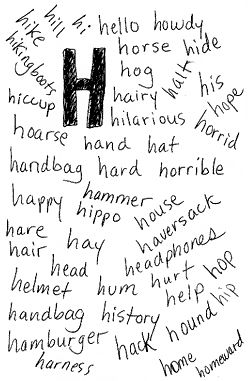 hike hill hi hello howdy
hikingboots H horse hide
hog halt
hiccup hairy his hope
hilarious horrid
hoarse hand hat
handbag hard horrible
happy hammer house
hippo haversack
hare hay
hair headphones
head hurt hop
helmet hum help hip
handbag history hound
hamburger hack
harness home homeward